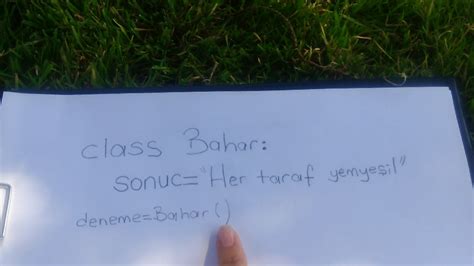 class Bahar:
sonuc="Her taraf yemyeşil"
deneme=Bahar()